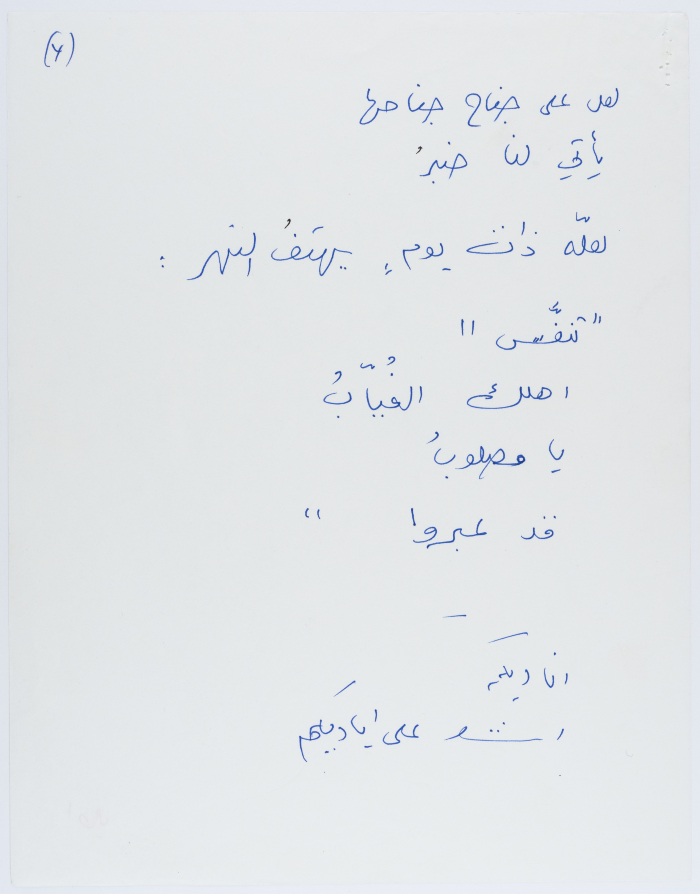 لعل على جناح جناحها
يأتي لنا خبرُ
لعلّه ذات يومٍ يهتفُ النهر :
"تنفَّس"
اهلك الغُيّابُ
يا مصلوبُ
قد عبروا "
—
اناديكم
اشد على اياديكم